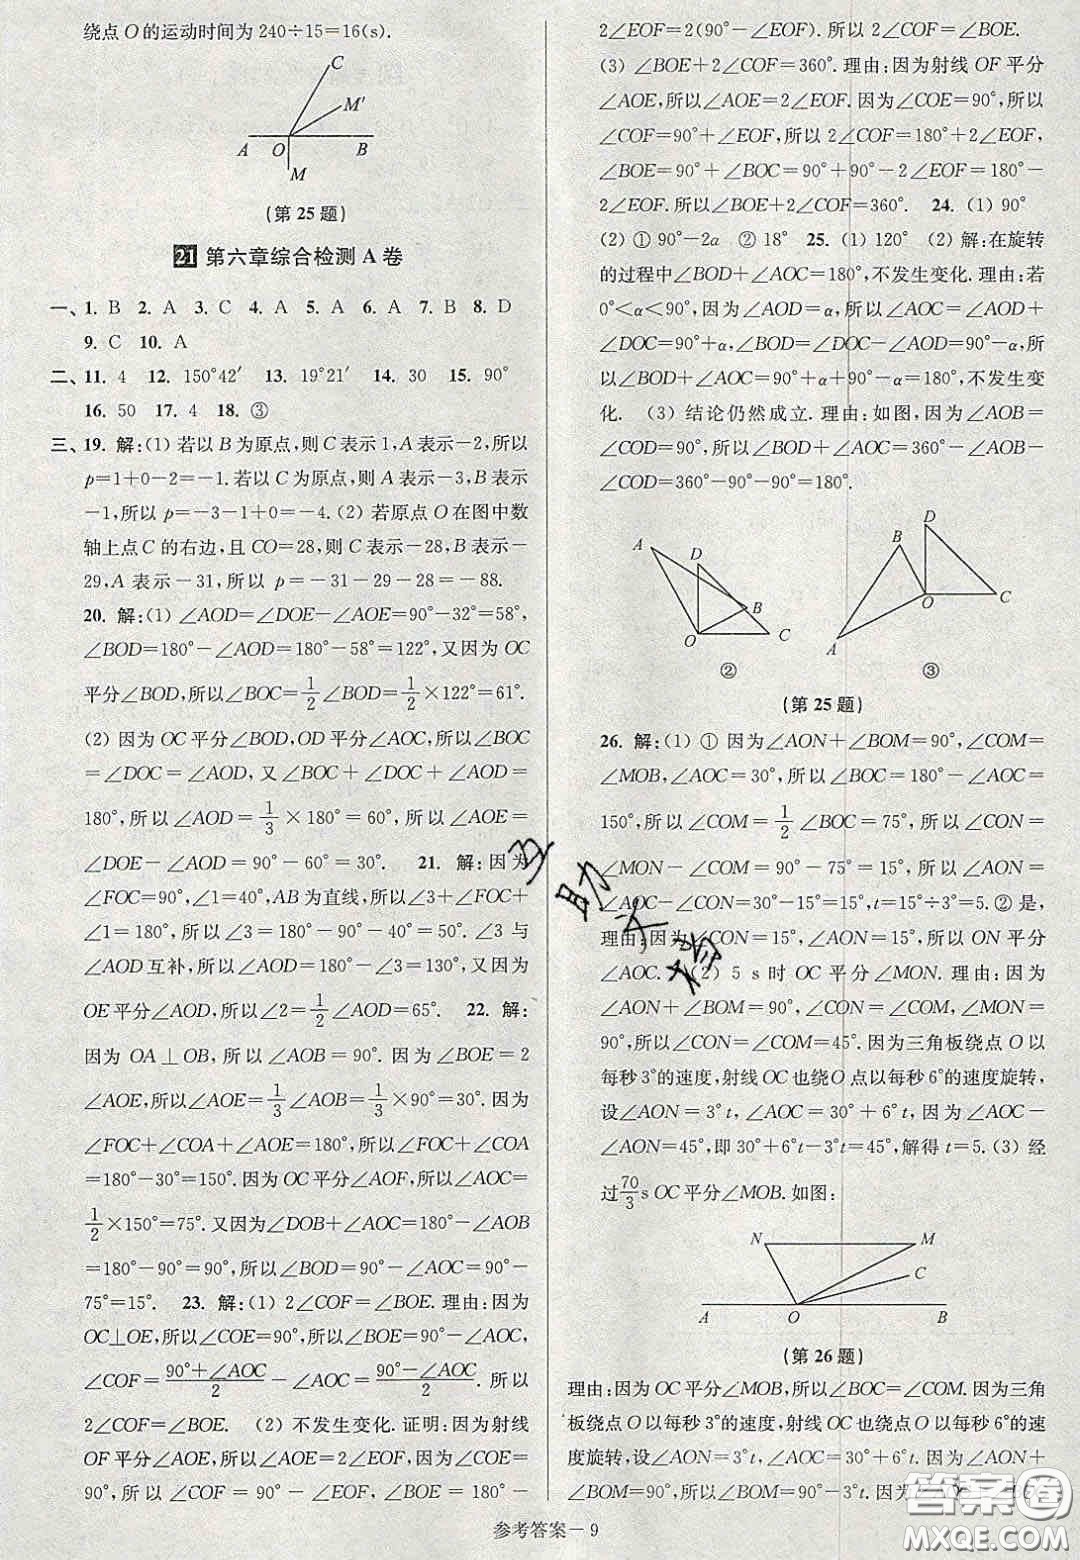 绕点 O 的运动时间为 240÷15=16(s).
C
M′
A
O
B
M
(第 25 题)
21 第六章综合检测 A 卷
一、1. B 2. A 3. C 4. A 5. A 6. A 7. B 8. D
9. C 10. A
二、11. 4 12. 150°42′ 13. 19°21′ 14. 30 15. 90°
16. 50 17. 4 18. ③
三、19. 解:(1) 若以 B 为原点,则 C 表示 1,A 表示-2,所以
p=1+0-2=-1.若以 C 为原点,则 A 表示-3,B 表示
-1,所以 p=-3-1+0=-4.(2) 若原点 O 在图中数
轴上点 C 的右边,且 CO=28,则 C 表示-28,B 表示-
29,A 表示-31,所以 p=-31-29-28=-88.
20. 解:(1) ∠AOD=∠DOE-∠AOE=90°-32°=58°,
∠BOD=180°-∠AOD=180°-58°=122°,又因为 OC
平分∠BOD,所以∠BOC=1/2∠BOD=1/2×122°=61°.
(2) 因为 OC 平分∠BOD,OD 平分∠AOC,所以∠BOC
=∠DOC=∠AOD,又∠BOC+∠DOC+∠AOD=
180°,所以∠AOD=1/3×180°=60°,所以∠AOE=
∠DOE-∠AOD=90°-60°=30°. 21. 解:因为
∠FOC=90°,∠1=40°,AB 为直线,所以∠3+∠FOC+
∠1=180°,所以∠3=180°-90°-40°=50°.∠3 与
∠AOD 互补,所以∠AOD=180°-∠3=130°,又因为
OE 平分∠AOD,所以∠2=1/2∠AOD=65°. 22. 解:
因为 OA⊥OB,所以∠AOB=90°. 因为∠BOE=2
∠AOE,所以∠AOE=1/3∠AOB=1/3×90°=30°. 因为
∠FOC+∠COA+∠AOE=180°,所以∠FOC+∠COA
=180°-30°=150°. 因为 OC 平分∠AOF,所以∠AOC=
1/2×150°=75°. 又因为∠DOB+∠AOC=180°-∠AOB
=180°-90°=90°,所以∠BOD=90°-∠AOC=90°-
75°=15°. 23. 解:(1) 2∠COF=∠BOE.理由:因为
OC⊥OE,所以∠COE=90°,所以∠BOE=90°-∠AOC,
∠COF=(90°+∠AOC)/2-∠AOC=(90°-∠AOC)/2. 所以
2∠COF=∠BOE. (2) 不发生变化. 证明:因为射线
OF 平分∠AOE,所以∠AOE=2∠EOF,因为∠COE=
90°,所以∠COF=90°-∠EOF,∠BOE=180°-
2∠EOF=2(90°-∠EOF).所以 2∠COF=∠BOE.
(3) ∠BOE+2∠COF=360°.理由:因为射线 OF 平分
∠AOE,所以∠AOE=2∠EOF.因为∠COE=90°,所以
∠COF=90°+∠EOF,所以 2∠COF=180°+2∠EOF,
∠BOE=90°+∠BOC=90°+90°-∠AOC=180°-
2∠EOF.所以∠BOE+2∠COF=360°. 24. (1) 90°
(2) ① 90°-2a ② 18° 25. (1) 120° (2) 解:在旋转
的过程中∠BOD+∠AOC=180°,不发生变化.理由:若
0°<α<90°,则∠BOD+∠AOC=∠AOC=∠AOD+
∠DOC=90°+α,∠BOD=∠DOC-∠AOD=90°-α,所
以∠BOD+∠AOC=90°+α+90°-α=180°,不发生变
化. (3) 结论仍然成立.理由:如图,因为∠AOB=
∠COD=90°,所以∠BOD+∠AOC=360°-∠AOB-
∠COD=360°-90°-90°=180°.
A
D
B
O
C
②
D
B
O
C
A
③
(第 25 题)
26. 解:(1) ① 因为∠AON+∠BOM=90°,∠COM=
∠MOB,∠AOC=30°,所以∠BOC=180°-∠AOC=
150°,所以∠COM=1/2∠BOC=75°,所以∠CON=
∠MON-∠COM=90°-75°=15°,所以∠AON=
∠AOC-∠CON=30°-15°=15°,t=15°÷3°=5.② 是,
理由:因为∠CON=15°,∠AON=15°,所以 ON 平分
∠AOC. (2) 5 s 时 OC 平分∠MON. 理由:因为
∠AON+∠BOM=90°,∠CON=∠COM,∠MON=
90°,所以∠CON=∠COM=45°.因为三角板绕点 O 以
每秒 3°的速度,射线 OC 也绕 O 点以每秒 6°的速度旋转,
设∠AON=3°t,∠AOC=30°+6°t,因为∠AOC-
∠AON=45°,即 30°+6°t-3°t=45°,解得 t=5.(3) 经
过70/3 s OC 平分∠MOB.如图:
N
M
C
A
O
B
(第 26 题)
理由:因为 OC 平分∠MOB,所以∠BOC=∠COM.因为三角
板绕点 O 以每秒 3°的速度,射线 OC 也绕点 O 以每秒 6°的速
度旋转,设∠AON=3°t,∠AOC=30°+6°t.因为∠AON+
∠BOM=90°,所以∠BOM=90°-3°t,
互助文档
答案圈
MXQE.COM
参考答案－9